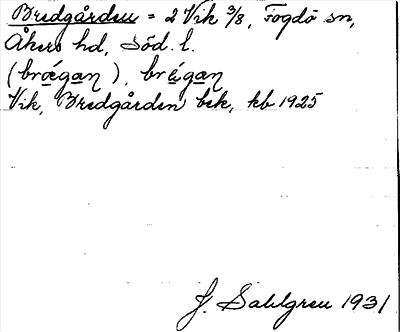 Bredgården = 2 Vik 3/8, Fogdö sn,
Åkers hd, Söd. l.
(brǽgan), brégan
Vik, Bredgården bek, kb 1925
J. Sahlgren 1931